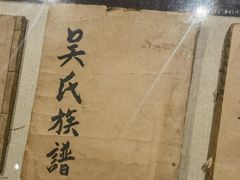 吴氏族譜